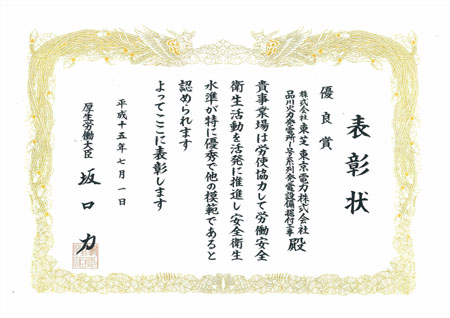 表彰状
優良賞
株式会社東芝 東京電力株式会社
品川火力発電所1号系列発電設備据付工事
殿
貴事業場は労使協力して労働安全
衛生活動を活発に推進し安全衛生
水準が特に優秀で他の模範であると
認められます
よってここに表彰します
平成十五年七月一日
厚生労働大臣 坂口力